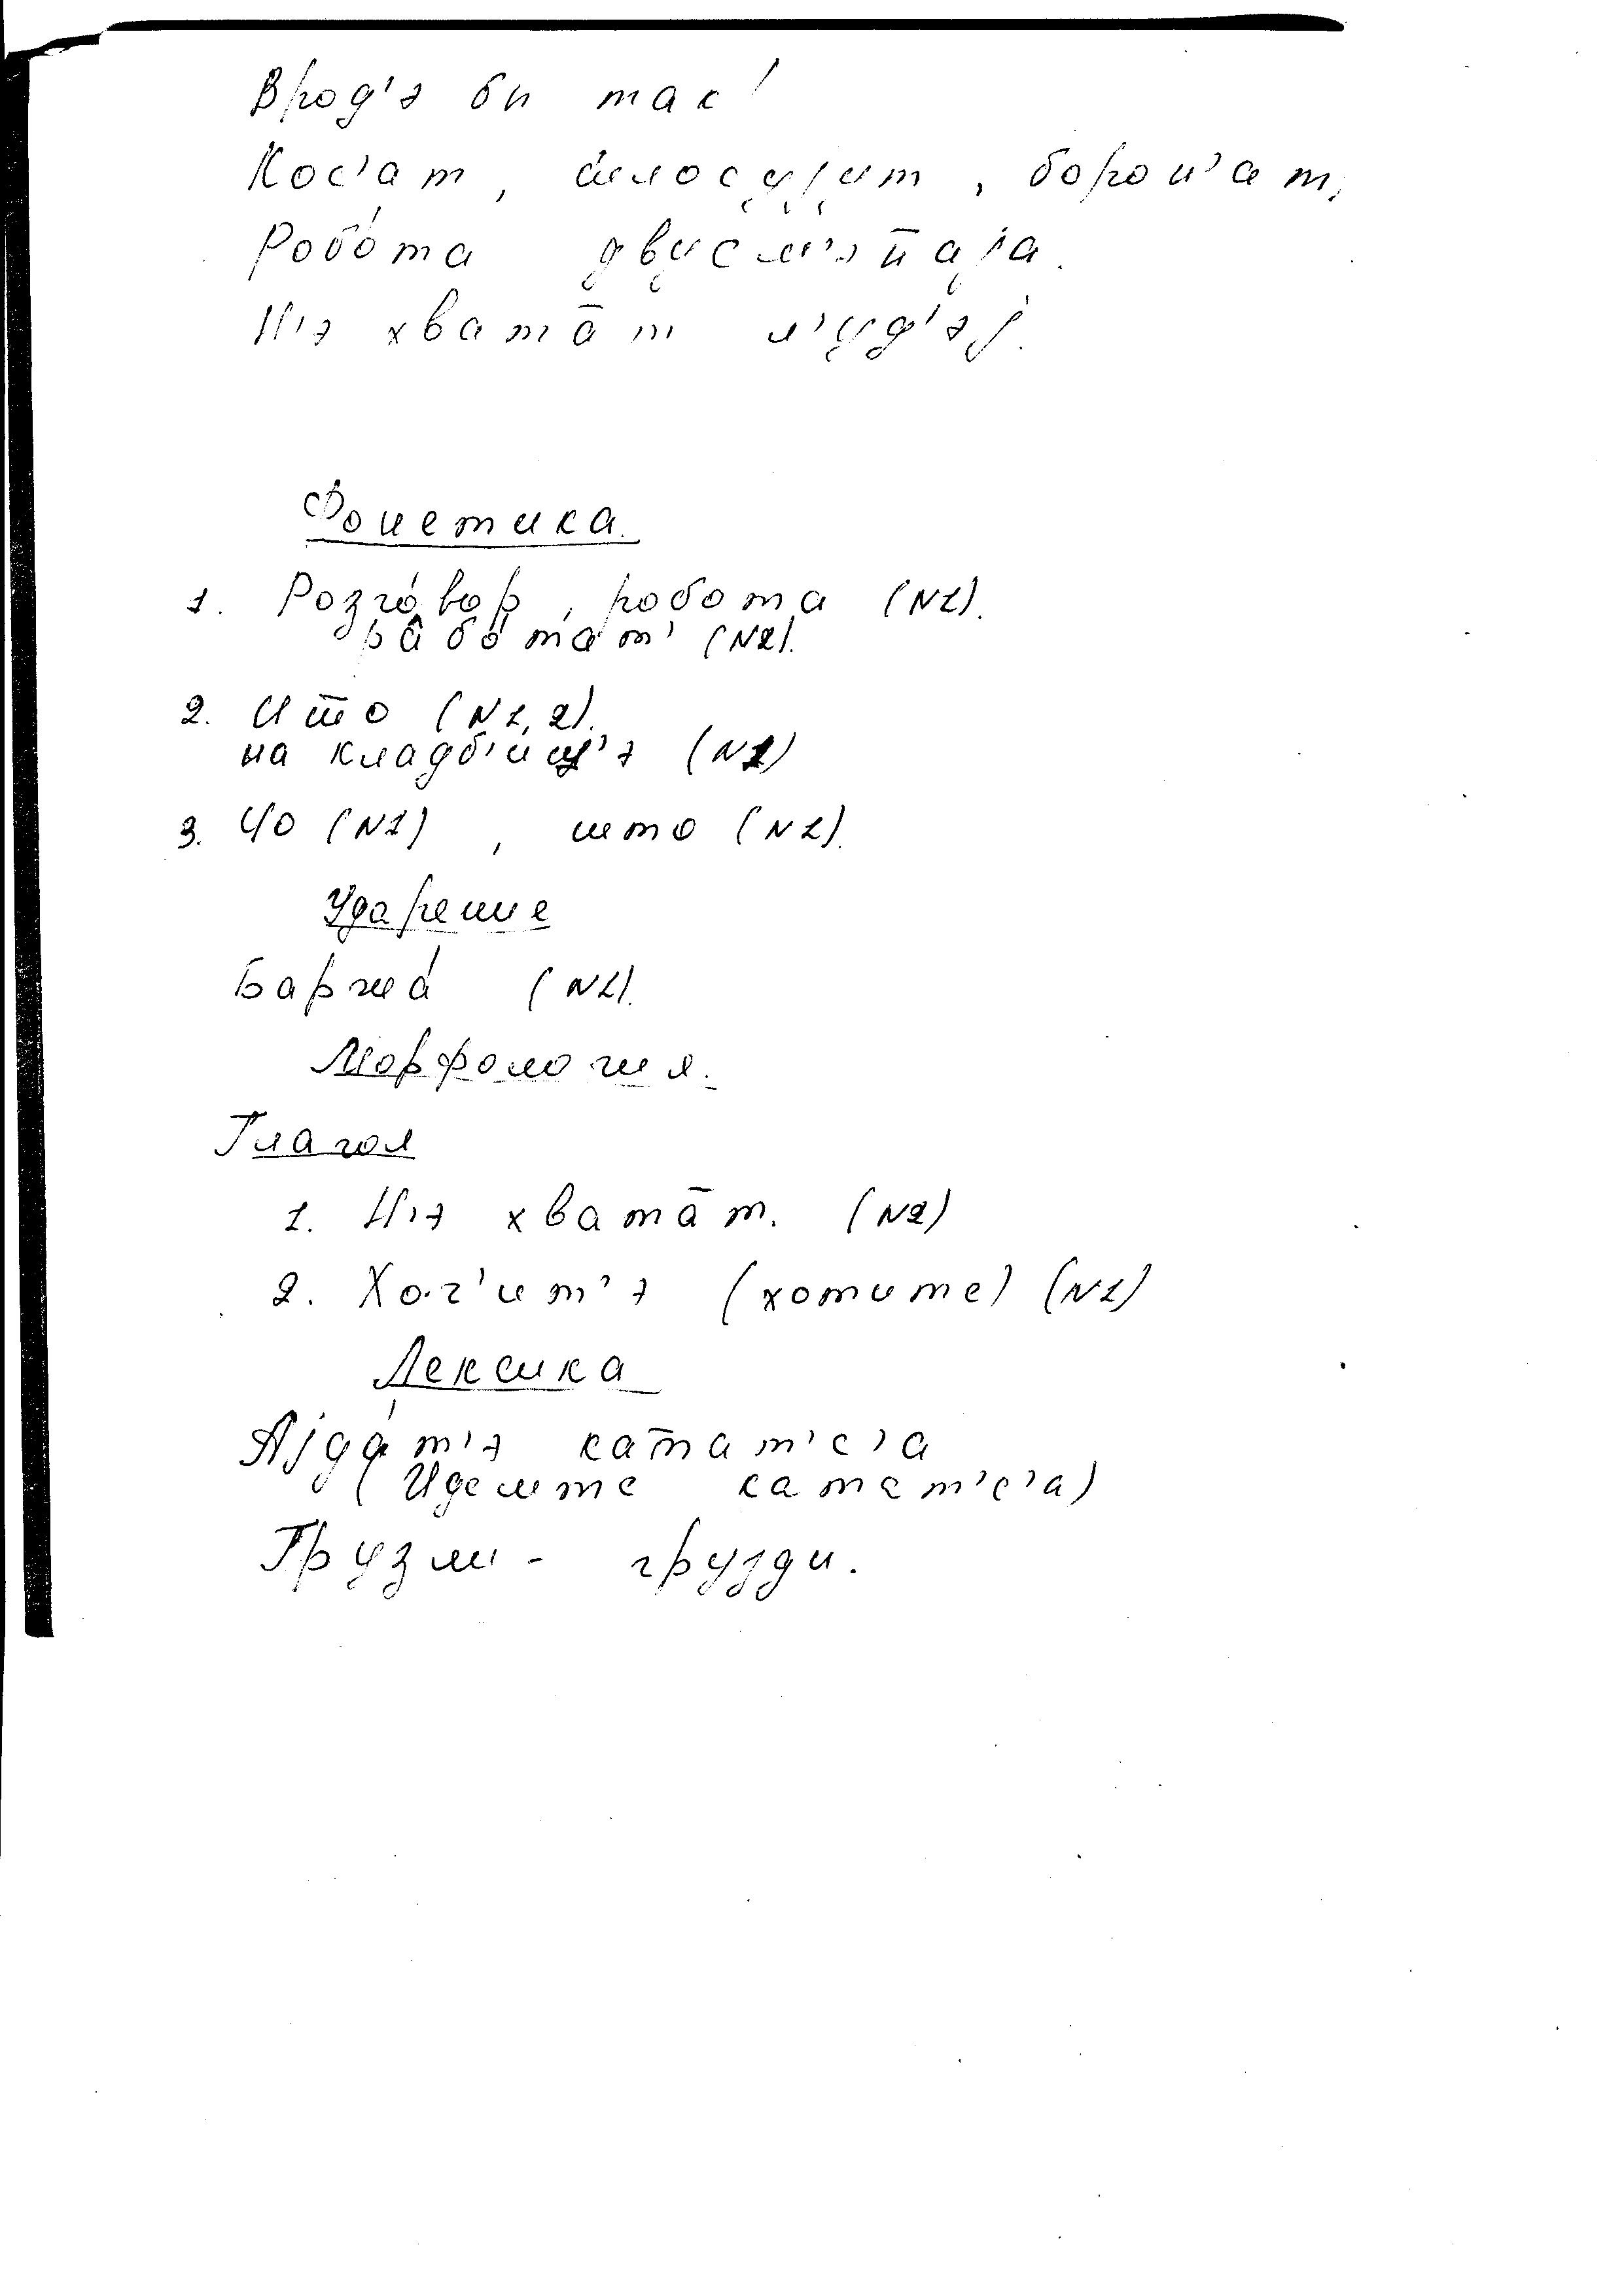 Врод'э би так!
Кос'ат, силосуjут, борон'ат,
Робо́та двусм'э̄наjа.
Н'э хвата̄т л'уд'эj.
Фонетика.
1. Розго́вор, робота (N1).
рабо́тат' (N2).
2. И што (N1,2).
на кладб'ищ'э (N1)
3. Чо (N1), што (N1).
Ударение
Баржа́ (N1).
Морфология.
Глагол
1. Н'э хвата̄т. (N2)
2. Хоч'ит'э (хотите) (N1)
Лексика
Аjда́т'э катат'с'а
(Идемте катат'с'а)
Грузли - грузди.